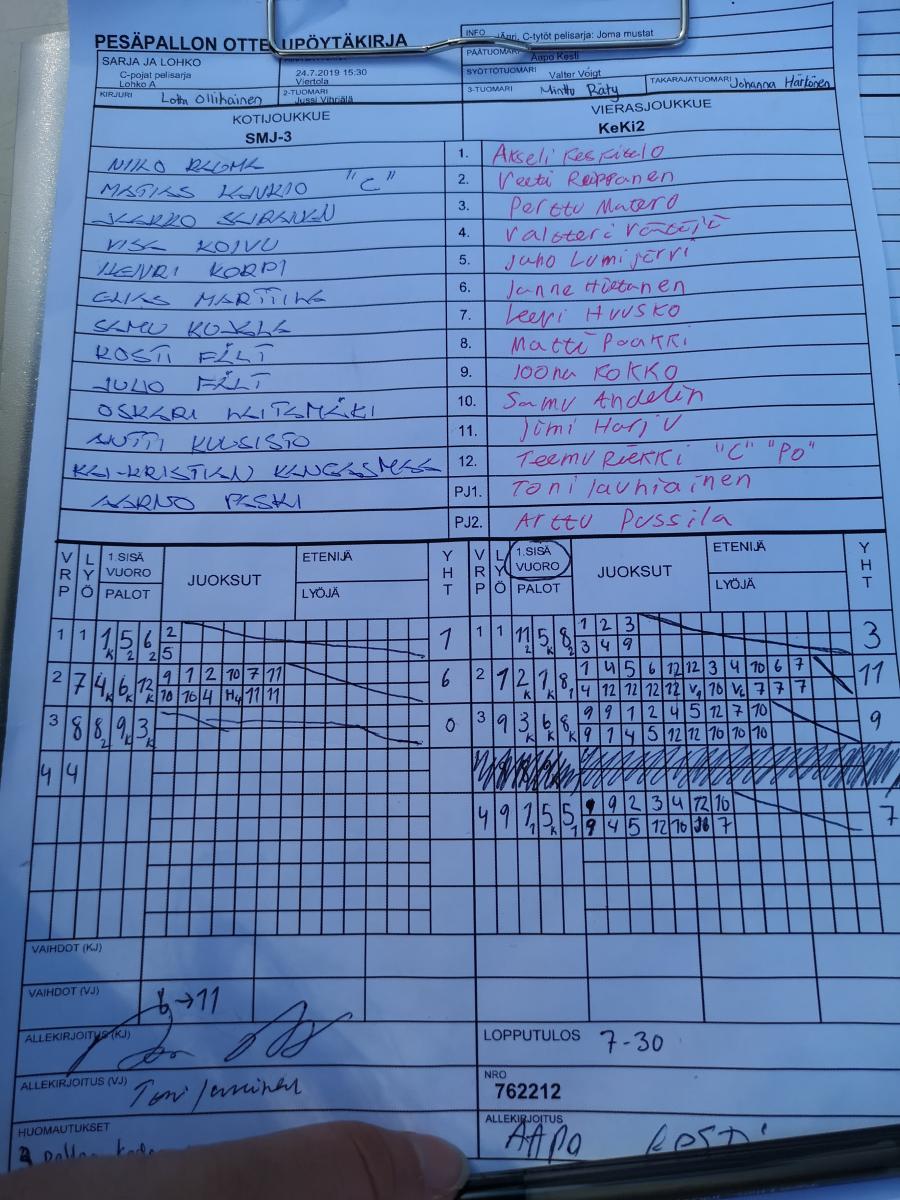 PESÄPALLON OTTELUPÖYTÄKIRJA
INFO
C-tytöt pelisarja: Joma mustat
SARJA JA LOHKO
C-pojat pelisarja
Lohko A
24.7.2019 15:30
Viertola
PÄÄTUOMARI Aapo Kesti
SYÖTTÖTUOMARI Valter Voigt
KIRJURI Lotta Ollikainen
2-TUOMARI
Jussi Vihriälä
3-TUOMARI Minttu Räty
TAKARAJATUOMARI Johanna Härkönen
KOTIJOUKKUE
SMJ-3
VIERASJOUKKUE
KeKi2
NIKO RAUMA 1. Akseli Keskitalo
MATIAS KANKIO "C" 2. Veeti Reippanen
JAAKKO SAIRANEN 3. Perttu Matero
VISA KOIVU 4. Valtteri
HENRI KORPI 5. Juho Lumijärvi
ELIAS MARTTILA 6. Janne Hietanen
SAMU KUJALA 7. Leevi Huusko
KOSTI FÄLT 8. Matti Paakki
JULIO FÄLT 9. Joona KOKKO
OSKARI 10. Samu Andelin
ANTTI KUUSISTO 11. Jimi Harju
KAI-KRISTIAN KANGASMAA 12. Teemu Riekki "C" "PO"
AARNO PASKI PJ1. Toni Jauhiainen
PJ2. Arttu Pussila
VRP LYÖ 1.SISÄ VUORO PALOT JUOKSUT ETENIJÄ LYÖJÄ YHT VRP LYÖ 1.SISÄ VUORO PALOT JUOKSUT ETENIJÄ LYÖJÄ YHT
1 1 1K 52 62 2 1 1 1 112 5K 82 1 2 3 3
5 3 4 9
2 7 4K 6K 12K 9 1 2 10 7 11 6 2 1 2K 1K 81 1 4 5 6 12 12 3 4 10 6 7 11
10 10 4 H4 11 11 4 12 12 12 12 V9 10 V2 7 7 7
3 8 82 9K 3K 0 3 9 3K 6K 8K 9 9 1 2 4 5 12 7 10 9
9 1 4 5 12 12 10 10 10
4 4
4 9 11 5K 51 9 9 2 3 4 12 10 7
9 4 5 12 10 10 7
VAIHDOT (KJ)
VAIHDOT (VJ) 6→11
ALLEKIRJOITUS (KJ)
LOPPUTULOS 7-30
ALLEKIRJOITUS (VJ)
NRO
762212
HUOMAUTUKSET
ALLEKIRJOITUS
AAPO KESTI